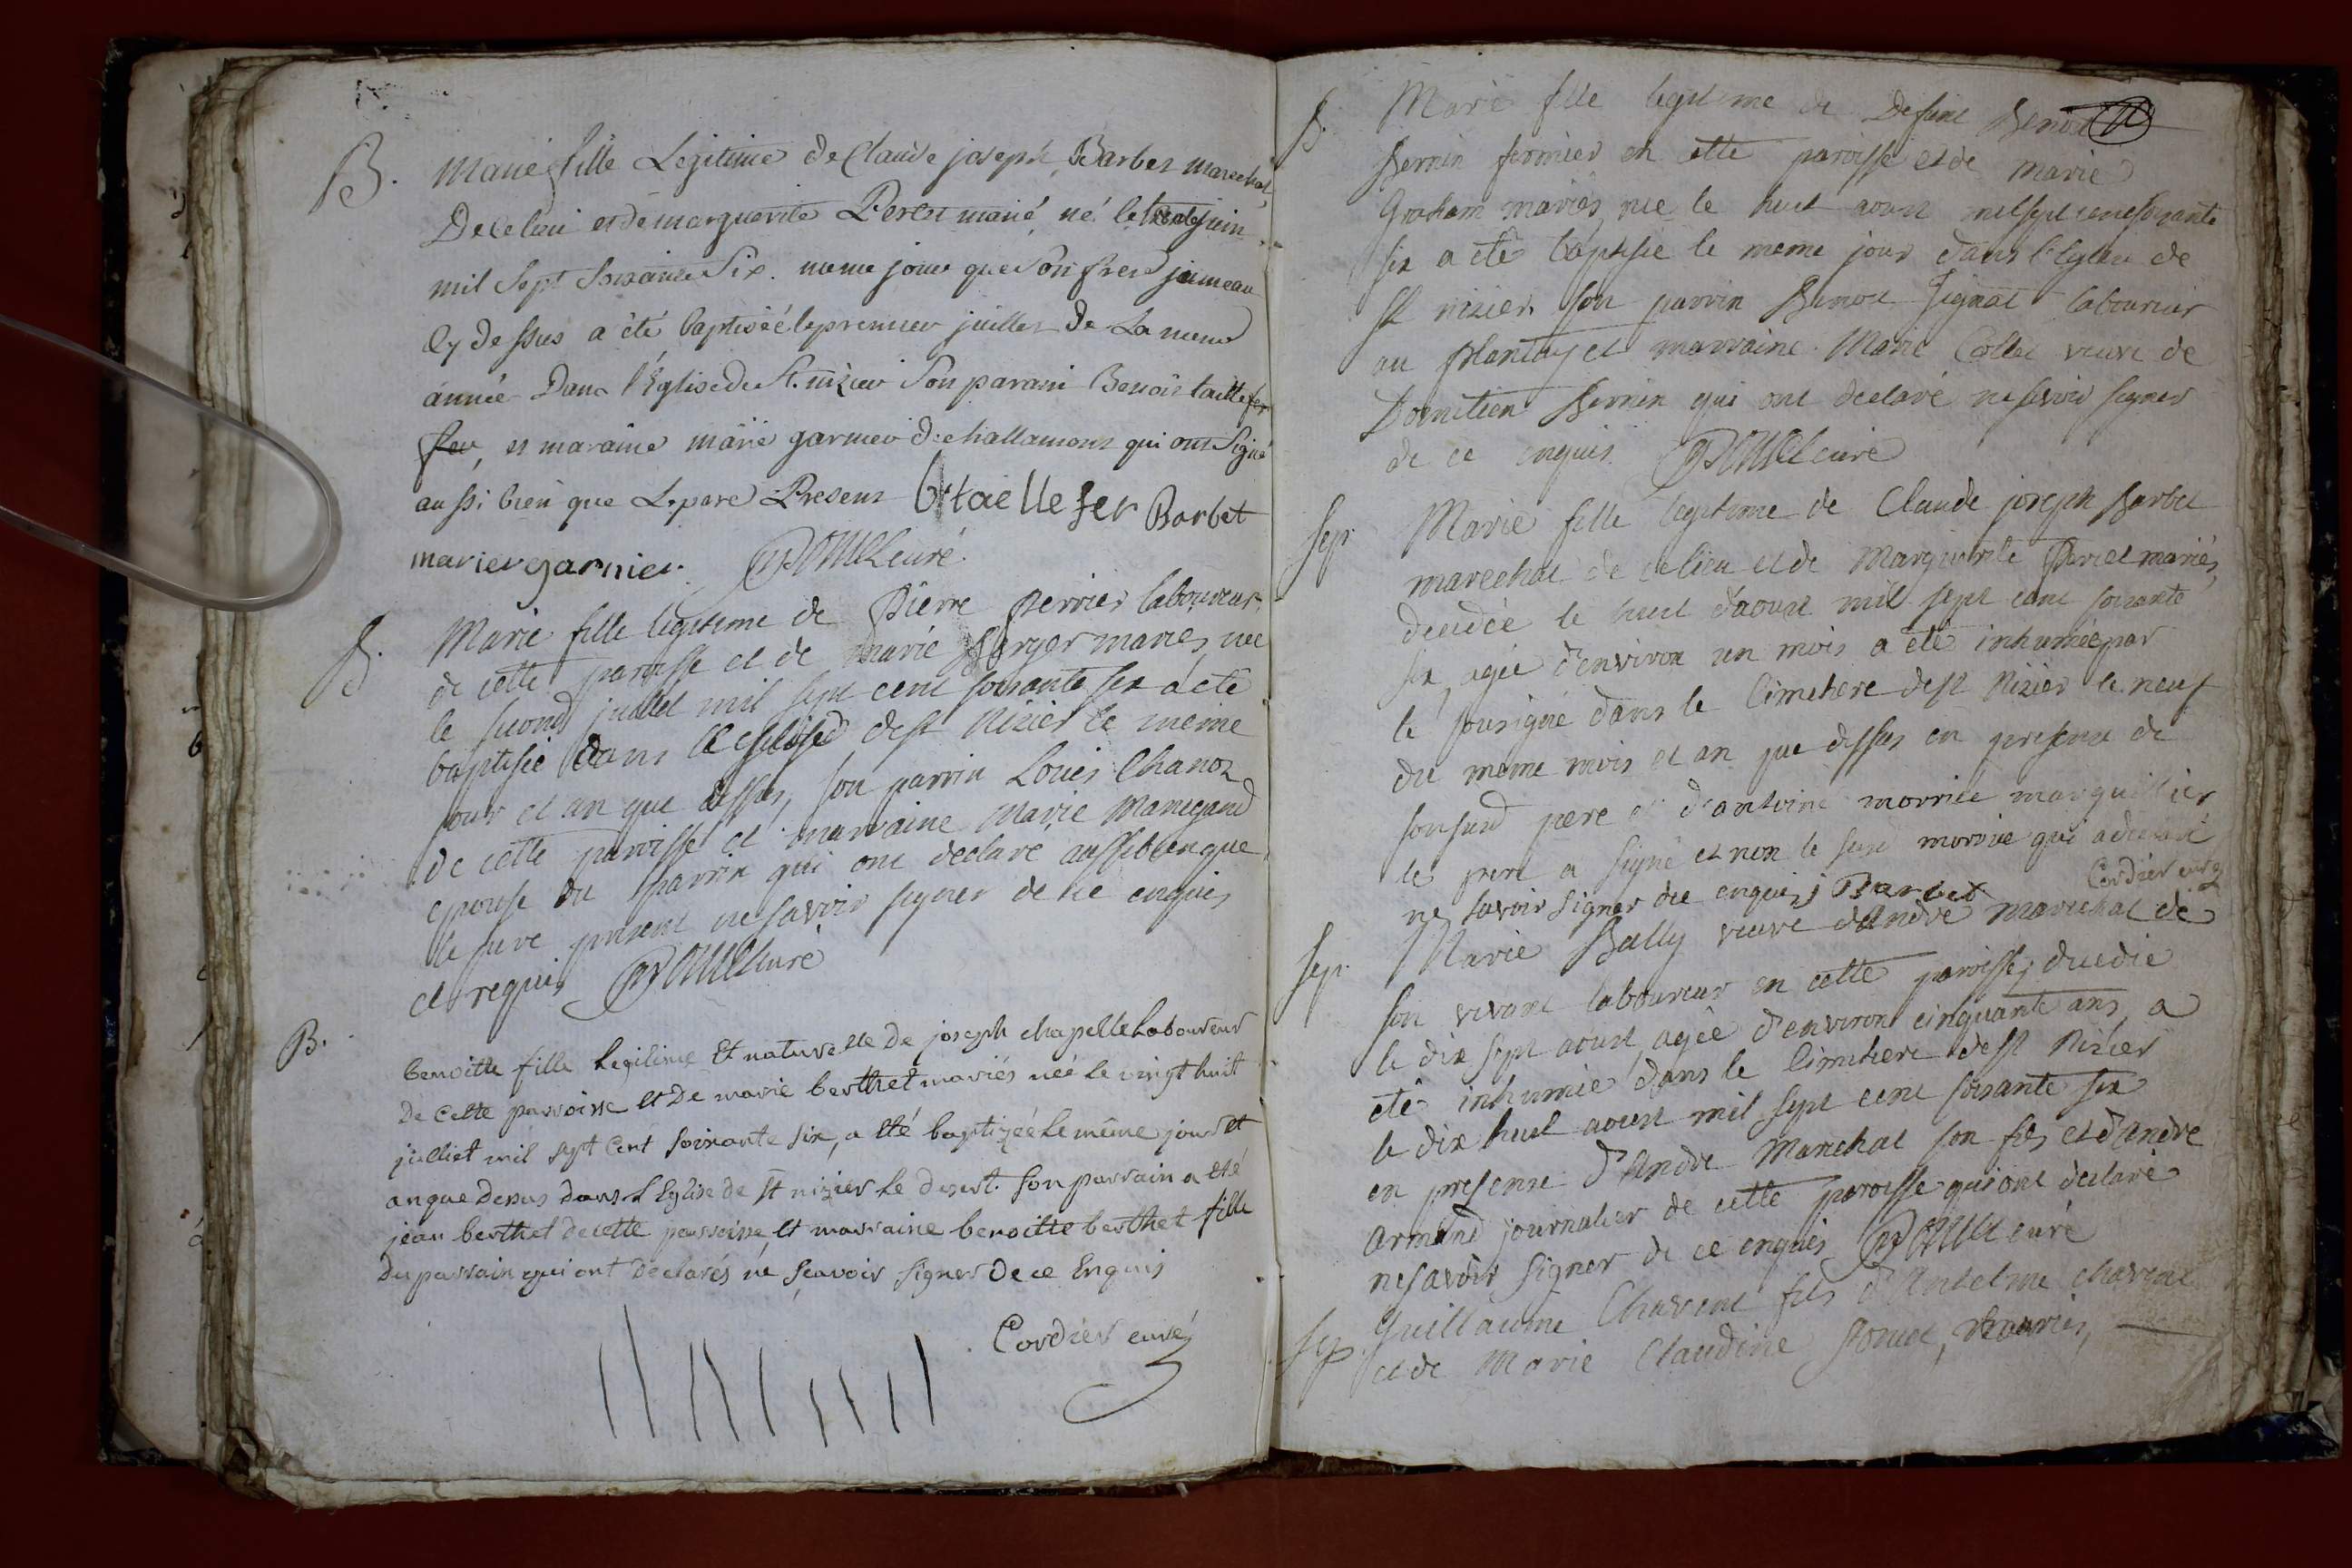 B. Marie fille Legitime de Claude joseph Barbet marechal
De ce lieu et de marguerite Peret marié, né le trente juin
mil Sept Soixante Six. meme jour que Son frere jumeau
Cy dessus a été baptiséé le premier juillet de La meme
année Dans l'Église de St. nizier Son parain Benoit taillefer
fer, et maraine marie garnier de challamont qui ont Signé
aussi bien que Le pere Present B taillefer Barbet
marie garnier curé.
B. Marie fille legitime de Pierre Perrier laboureur
de cette paroisse et de marie Berger mariés, née
le second juillet mil sept cent soixante six a eté
baptisée dans l'eglise de St Nizier le meme
jour et an que dessus, son parrin Louis Chanoz
de cette paroisse et marraine Marie Manigand
epouse du parrin qui ont declaré aussi bien que
le pere present ne savoir signer de ce enquis
et requis curé
B. benoitte fille Legitime Et naturelle De joseph chapelle Laboureur
De Cette parroisse Et De marie berthet mariés néé Le vingt huit
julliet mil sept Cent Soixante Six, a Eté baptizéé Le même jour Et
an que Dessus dans L'Eglise de St nizier Le desert. Son parrain a eté
jean berthet de cette parroisse, Et marraine benoitte berthet fille
Du parrain qui ont Déclarés né Sçavoir Signer De ce Enquis
Cordier curé
B. Marie fille legitime de Defunt Benoit
Bernin fermier en cette paroisse et de Marie
Graham mariés née le huit aoust mil sept cent soixante
six a eté baptisée le meme jour dans l'Eglise de
St nizier son parrin Benoit Jignat laboureur
au plantay et marraine Marie Collet veuve de
Domitien Bernin qui ont declaré ne savoir signer
de ce enquis curé
Sep. Marie fille legitime de Claude joseph Barbet
marechal de ce lieu et de Marguerite Peret mariés,
decedée le huit d'aoust mil sept cent soixante
six, agée d'environ un mois a eté inhumée par
le sousigné dans le Cimetiere de St Nizier le neuf
du meme mois et an que dessus en presence de
son susd pere et d'antoine morrier marguillier
le pere a signé et non le susd morrier qui a declaré
ne savoir signer de ce enquis Barbet Cordier curé
Sep. Marie Bally veuve d'André Marechal de
son vivant laboureur en cette paroisse, decedée
le dix sept aoust, agée d'environ cinquante ans, a
eté inhumée dans le Cimetiere de St Nizier
le dix huit aoust mil sept cent soixante six
en presence d'André Marechal son fils et d'André
Armand journalier de cette paroisse qui ont declaré
ne savoir signer de ce enquis curé
Sep. Guillaume Charvent fils d'Antelme Charvent
et de Marie Claudine mariés,